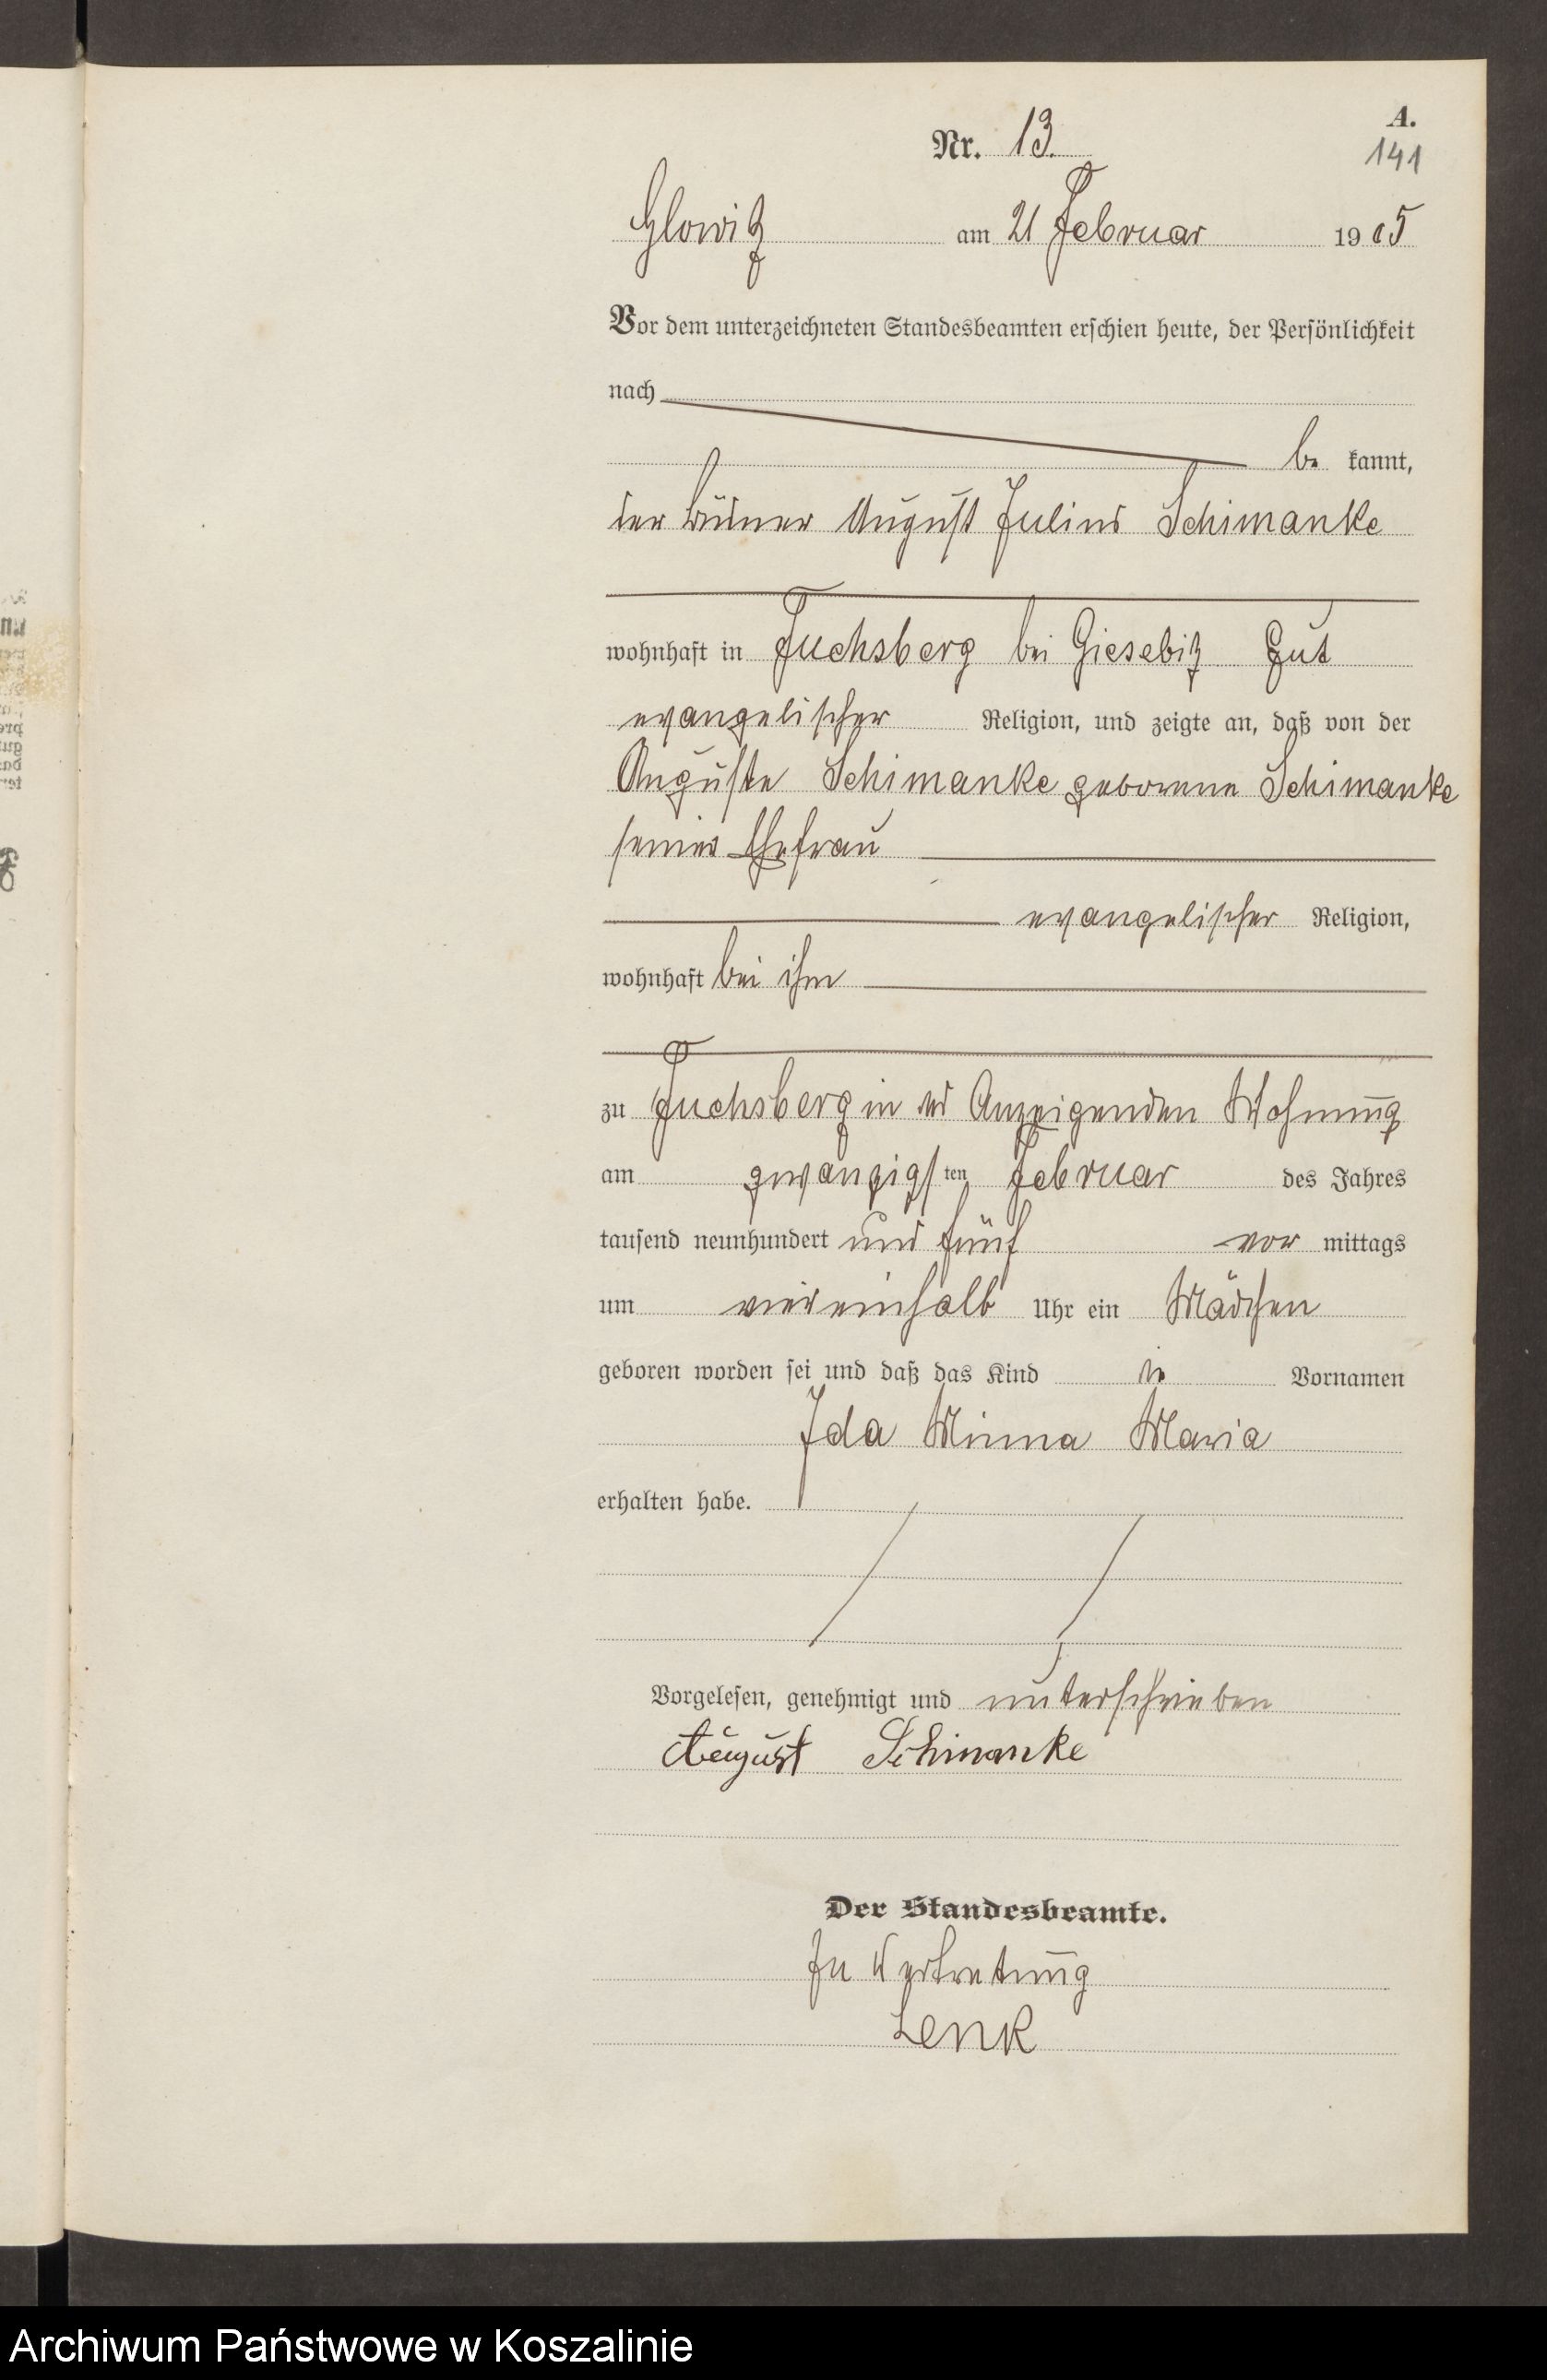 A.
Nr. 13.
141
Glowitz am 21 Februar 1905
Vor dem unterzeichneten Standesbeamten erschien heute, der Persönlichkeit
nach
be kannt,
der Büdner August Julius Schimanke
wohnhaft in Fuchsberg bei Giesebitz Gut
evangelischer Religion, und zeigte an, daß von der
Auguste Schimanke geborene Schimanke
seiner Ehefrau
evangelischer Religion,
wohnhaft bei ihm
zu Fuchsberg in des Anzeigenden Wohnung
am zwanzigsten Februar des Jahres
tausend neunhundert und fünf vor mittags
um viereinhalb Uhr ein Mädchen
geboren worden sei und daß das Kind die Vornamen
Ida Minna Maria
erhalten habe.
Vorgelesen, genehmigt und unterschrieben
August Schimanke
Der Standesbeamte.
In Vertretung
Lenk
Archiwum Państwowe w Koszalinie